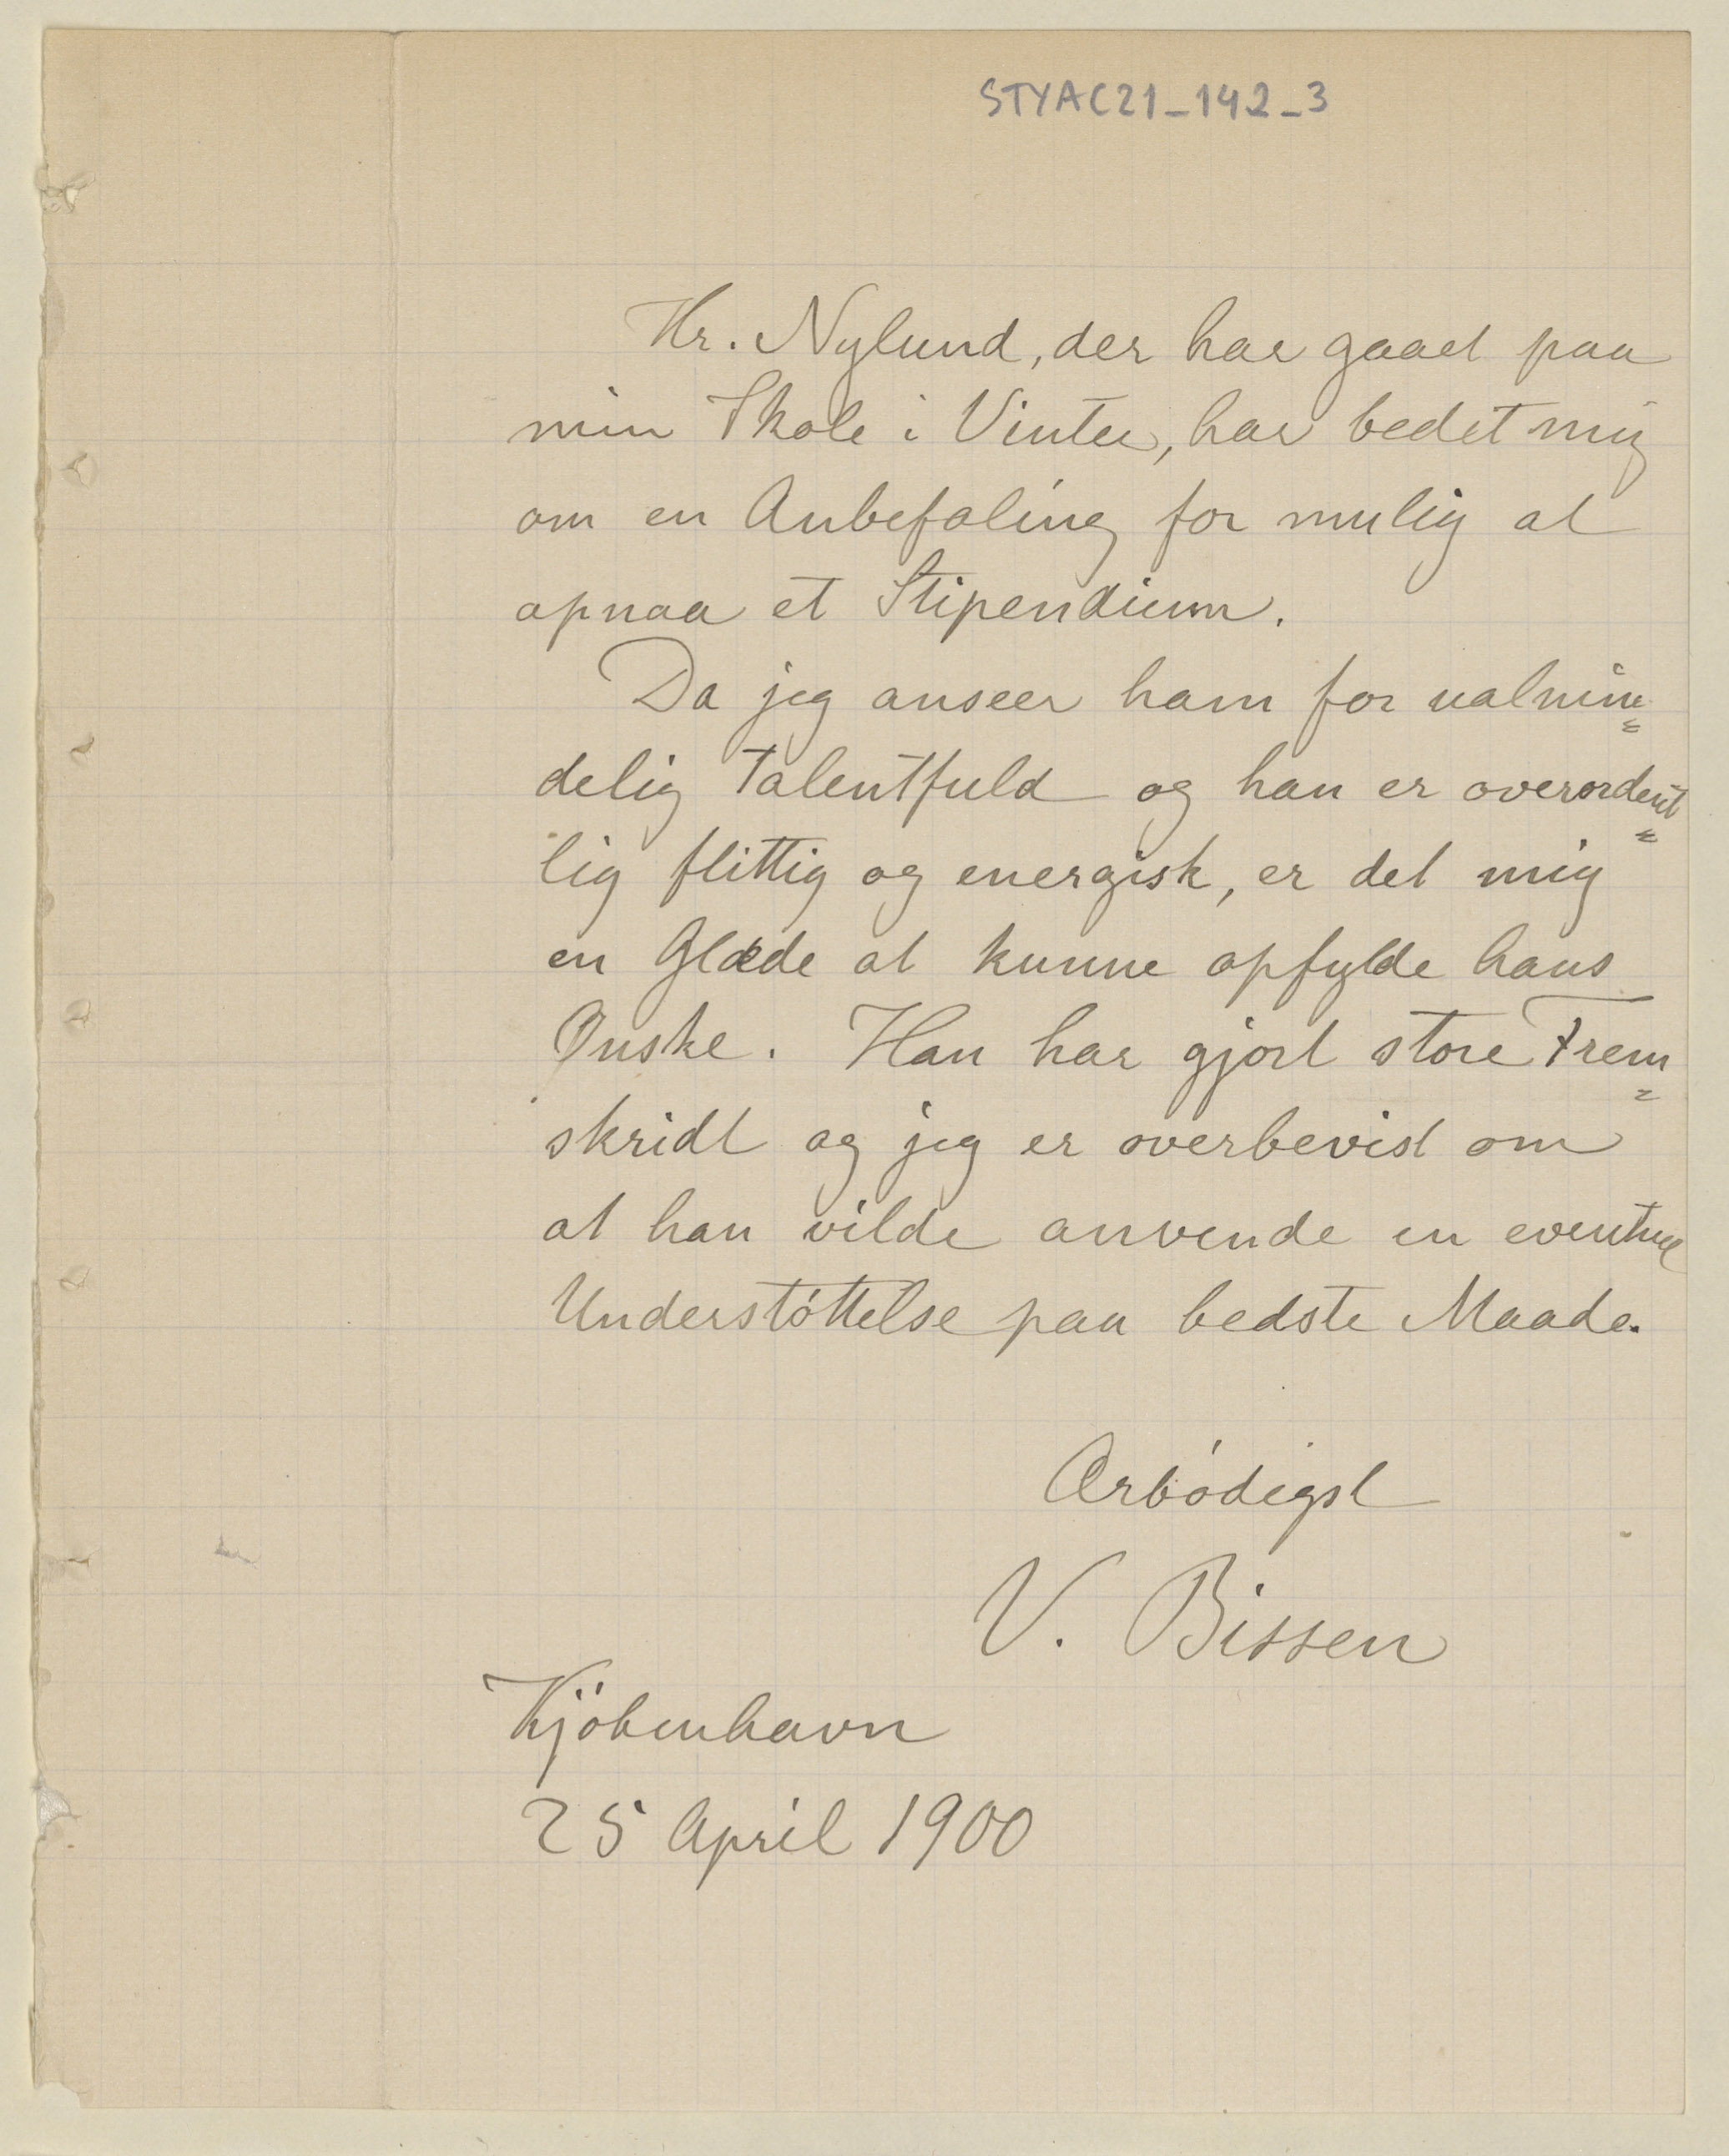 STYAC21_142_3
Hr. Nylund, der har gaaet paa
min Skole i Vinter, har bedet mig
om en Anbefaling for mulig at
opnaa et Stipendium.
Da jeg anseer ham for ualmin=
delig talentfuld og han er overordent=
lig flittig og energisk, er det mig
en Glæde at kunne opfylde hans
Ønske. Han har gjort store Frem=
skridt og jeg er overbevist om
at han vilde anvende en eventuel
Understóttelse paa bedste Maade.
Ærbódigst
V. Bissen
Kjóbenhavn
25 April 1900